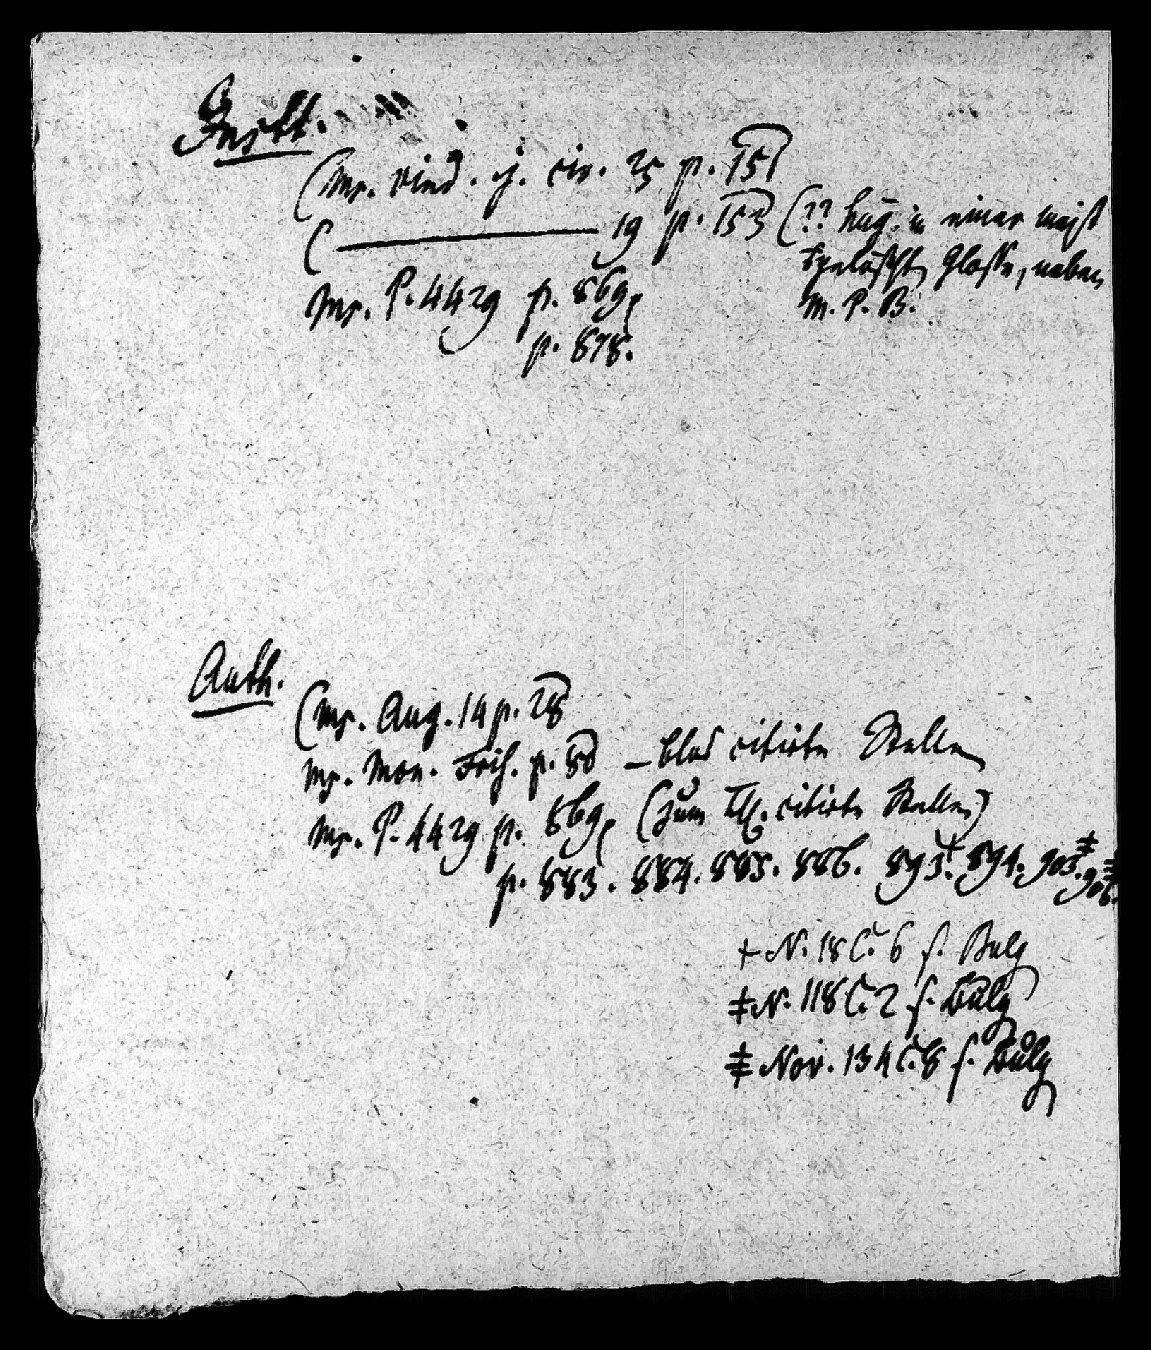 Instt.
(Ms. vind. j. civ. 25 p. 151
( ——— 19 p. 153 (?? hug. in einer meist
gelöscht Glosse, neben
Ms. P. 4429 p. 869,
M. P. B.
p. 878.
Auth.
(Ms. Aug. 14 p. 28
Ms. Mon. Fris. p. 50 – blos citirte Stellen
Ms. P. 4429 p. 869, (zum citirte Stellen)
p. 883. 884. 885. 886. 893.† 894. 903.‡ 906.
† N. 18 C. 6 f. Bulg
‡ N. 118 C. 2 f. Bulg
Nov. 134 C. 8 f. Bulg